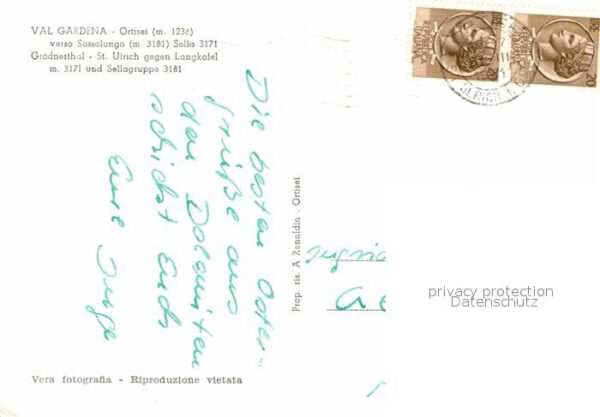 VAL GARDENA - Ortisei (m. 1236)
verso Sassolungo (m 3181) Sella 3171
Grödnerthal - St. Ulrich gegen Langkofel
m. 3171 und Sellagruppe 3181
Die besten Oster-
grüße aus
den Dolomiten
schickt Euch
Eure Inge
Prop. ris. A Renoldin . Ortisei
privacy protection
Datenschutz
Vera fotografia - Riproduzione vietata
20